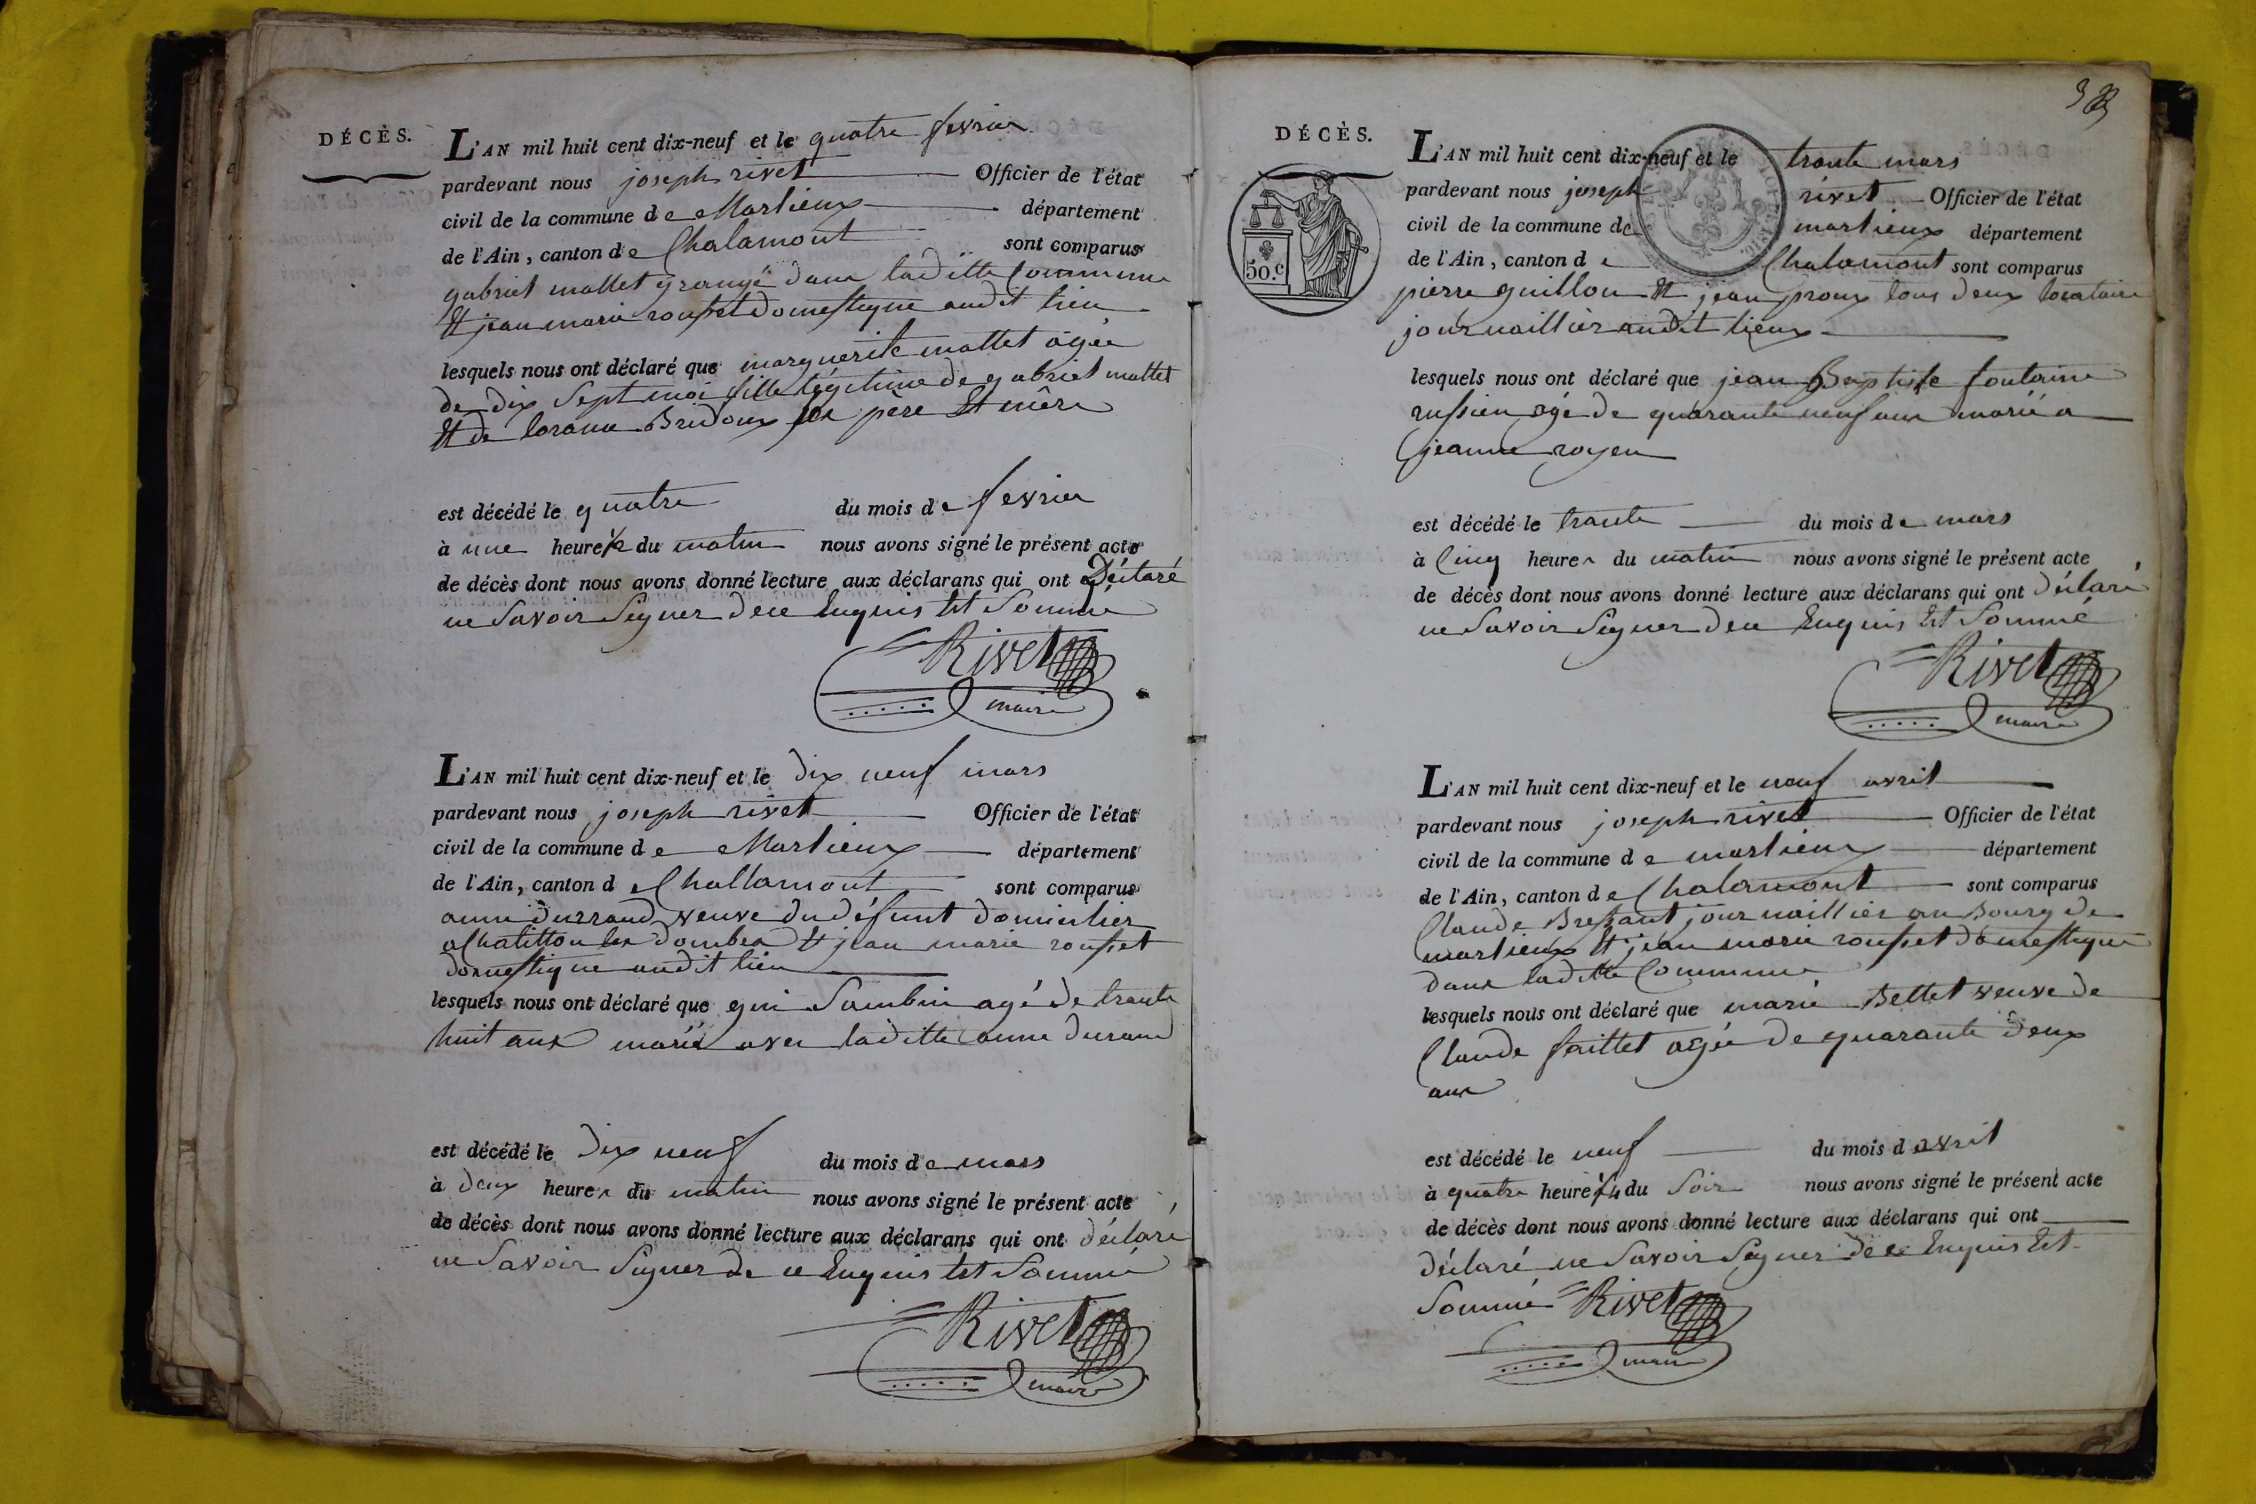 DÉCÈS.
L'AN mil huit cent dix-neuf et le quatre fevrier
pardevant nous joseph rivet Officier de l'état
civil de la commune de Marlieux département
de l'Ain, canton de Chalamont sont comparus
gabriel mallet grangé dans laditte Commune
Et jean marie rousset domestique audit lieu
lesquels nous ont déclaré que marguerite mallet agée
de dix Sept moi fille légitime de gabriel mallet
Et de Bridoux ses père Et mère
est décédé le quatre du mois de fevrier
à une heure 1/2 du matin nous avons signé le présent acte
de décès dont nous avons donné lecture aux déclarans qui ont Déclaré
ne Savoir Signer de ce Enquis Et Sommé
Rivet
maire
L'AN mil huit cent dix-neuf et le dix neuf mars
pardevant nous joseph rivet Officier de l'état
civil de la commune de Marlieux département
de l'Ain, canton de Challamont sont comparus
anne durrand veuve du défunt domicilier
a Chatillon les dombes Et jean marie rousset
domestique audit lieu
lesquels nous ont déclaré que gui Sambin agé de trante
huit ans marié avec laditte anne durand
est décédé le dix neuf du mois de mars
à deux heures du matin nous avons signé le présent acte
de décès dont nous avons donné lecture aux déclarans qui ont déclaré
ne Savoir Signer de ce Enquis Et Sommé
Rivet
maire
DÉCÈS.
50.c
L'AN mil huit cent dix-neuf et le trante mars
pardevant nous joseph rivet Officier de l'état
civil de la commune de marlieux département
de l'Ain, canton de Chalamont sont comparus
pierre guillon Et jean proux tous deux locataire
journaillier audit lieux
lesquels nous ont déclaré que jean Baptiste fontaine
russien agé de quarante neuf ans marié a
jeanne royer
est décédé le trante du mois de mars
à Cinq heures du matin nous avons signé le présent acte
de décès dont nous avons donné lecture aux déclarans qui ont déclaré
ne Savoir Signer de ce Enquis Et Sommé
Rivet
maire
L'AN mil huit cent dix-neuf et le neuf avril
pardevant nous joseph rivet Officier de l'état
civil de la commune de marlieux département
de l'Ain, canton de Chalamont sont comparus
Claude Bressant journaillier au Bourg de
marlieux Et jean marie rousset domestique
dans laditte Commune
lesquels nous ont déclaré que marie Bellet veuve de
Claude faillet agée de quarante deux
ans
est décédé le neuf du mois d avril
à quatre heure du Soir nous avons signé le présent acte
de décès dont nous avons donné lecture aux déclarans qui ont
déclaré ne Savoir Signer de ce Enquis Et
Sommé Rivet
maire